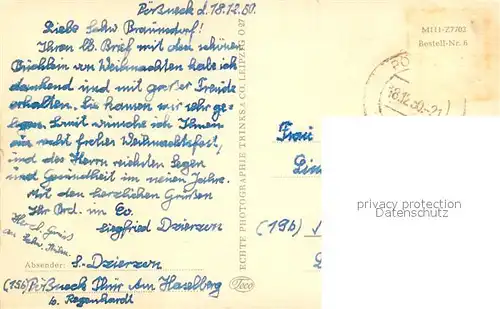 Pößneck d. 18.12.50.
Liebe Schw Braunsdorf!
Ihren lb. Brief mit den schönen
Büchlein von Weihnachten habe ich
dankend und mit großer Freude
erhalten. Sie kamen mir sehr ge-
legen. Somit wünsche ich Ihnen
ein recht frohes Weihnachtsfest,
und des Herrn reichsten Segen
und Gesundheit im neuen Jahre.
Mit den herzlichen Grüssen
Ihr Brd. im Eo.
Siegfried Dzierzon
Herzl. Grüss
an Schw.
Absender: S. Dzierzon
(15b) Pößneck Thür Am Haselberg
b. Regenhardt
ECHTE PHOTOGRAPHIE TRINKS & CO. LEIPZIG O 27
Teco
M111-Z7702
Bestell-Nr. 6
PÖ
18.12.50.-21
Frau
(19b)
privacy protection
Datenschutz